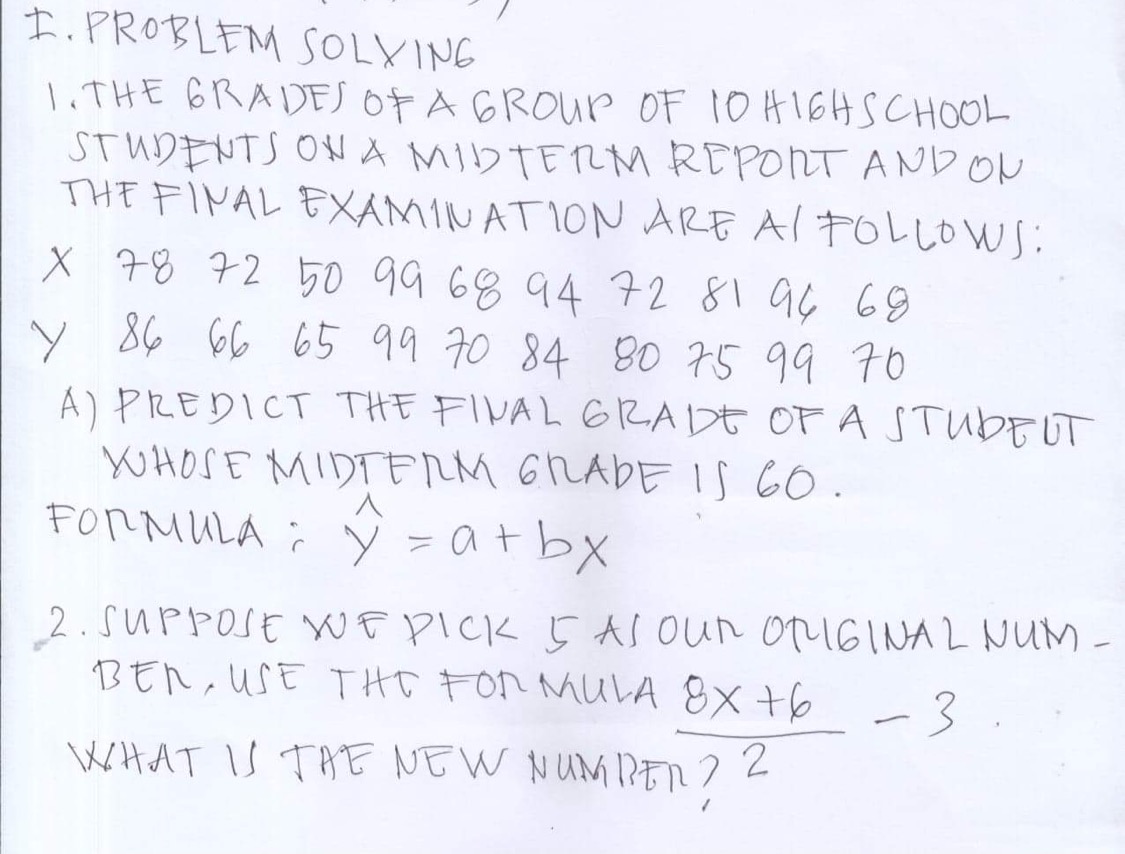 I. PROBLEM SOLVING
1. THE GRADES OF A GROUP OF 10 HIGH SCHOOL
STUDENTS ON A MIDTERM REPORT AND ON
THE FINAL EXAMINATION ARE AS FOLLOWS:
X 78 72 50 99 68 94 72 81 96 68
Y 86 66 65 99 70 84 80 75 99 70
A) PREDICT THE FINAL GRADE OF A STUDENT
WHOSE MIDTERM GRADE IS 60.
FORMULA: ŷ = a + bx
2. SUPPOSE WE PICK 5 AS OUR ORIGINAL NUM-
BER, USE THE FORMULA 8X+6 - 3.
WHAT IS THE NEW NUMBER? 2